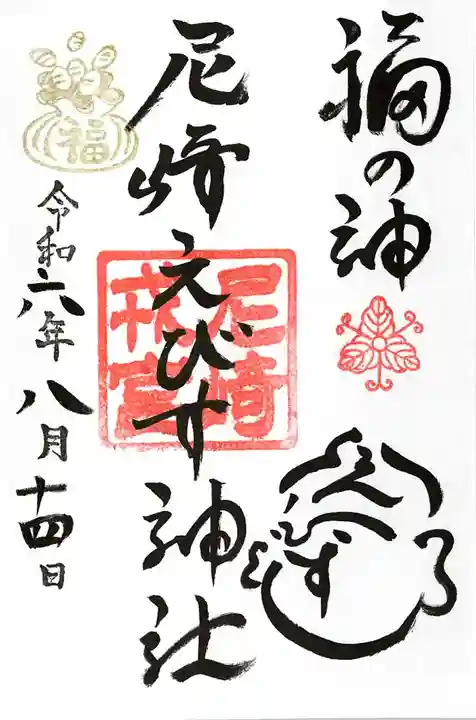 福の神
えびす
尼崎えびす神社
尼崎
戎宮
福
令和六年八月十四日